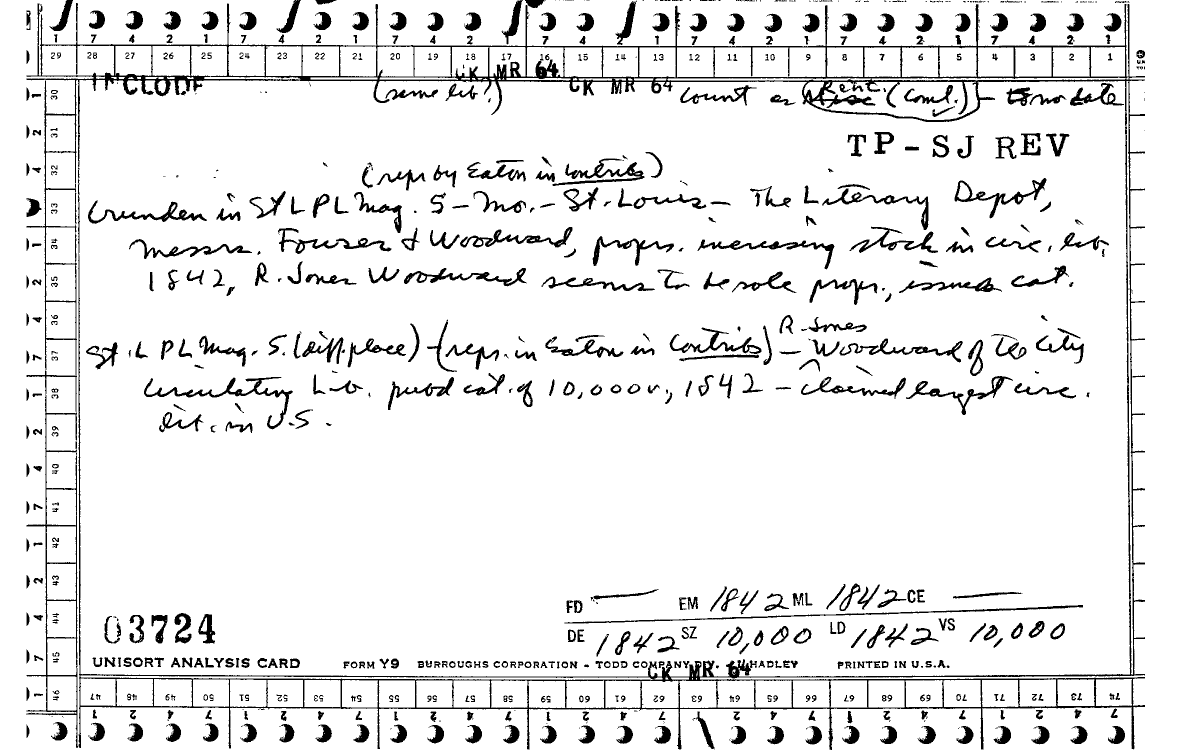 1 7 4 2 1 7 4 2 1 7 4 2 1 7 4 2 1 7 4 2 1 7 4 2 1
29 28 27 26 25 24 23 22 21 20 19 18 17 16 15 14 13 12 11 10 9 8 7 6 5 4 3 2 1
INCLUDE (same lib?) CK MR 64 CK MR 64 count as Rent. (Coml.) - no date
TP-SJ REV
(repr by Eaton in Contribs)
Crunden in St L PL Mag. 5 - Mo. - St. Louis - The Literary Depot,
Messrs. Fouser & Woodward, proprs. increasing stock in circ. lib.
1842, R. Jones Woodward seems to be sole propr., issued cat.
R. Jones
St. L PL Mag. 5. (diff. place) - (repr. in Eaton in Contribs) - Woodward of the City
Circulating Lib. pubd cat. of 10,000v., 1842 - claimed largest circ.
lib. in U.S.
30
31
32
33
34
35
36
37
38
39
40
41
42
43
44
45
46
FD — EM 1842 ML 1842 CE —
DE 1842 SZ 10,000 LD 1842 VS 10,000
03724
UNISORT ANALYSIS CARD FORM Y9 BURROUGHS CORPORATION - TODD COMPANY DIV. - HADLEY PRINTED IN U.S.A.
CK MR 64
47 48 49 50 51 52 53 54 55 56 57 58 59 60 61 62 63 64 65 66 67 68 69 70 71 72 73 74
1 2 4 7 1 2 4 7 1 2 4 7 1 2 4 7 1 2 4 7 1 2 4 7 1 2 4 7